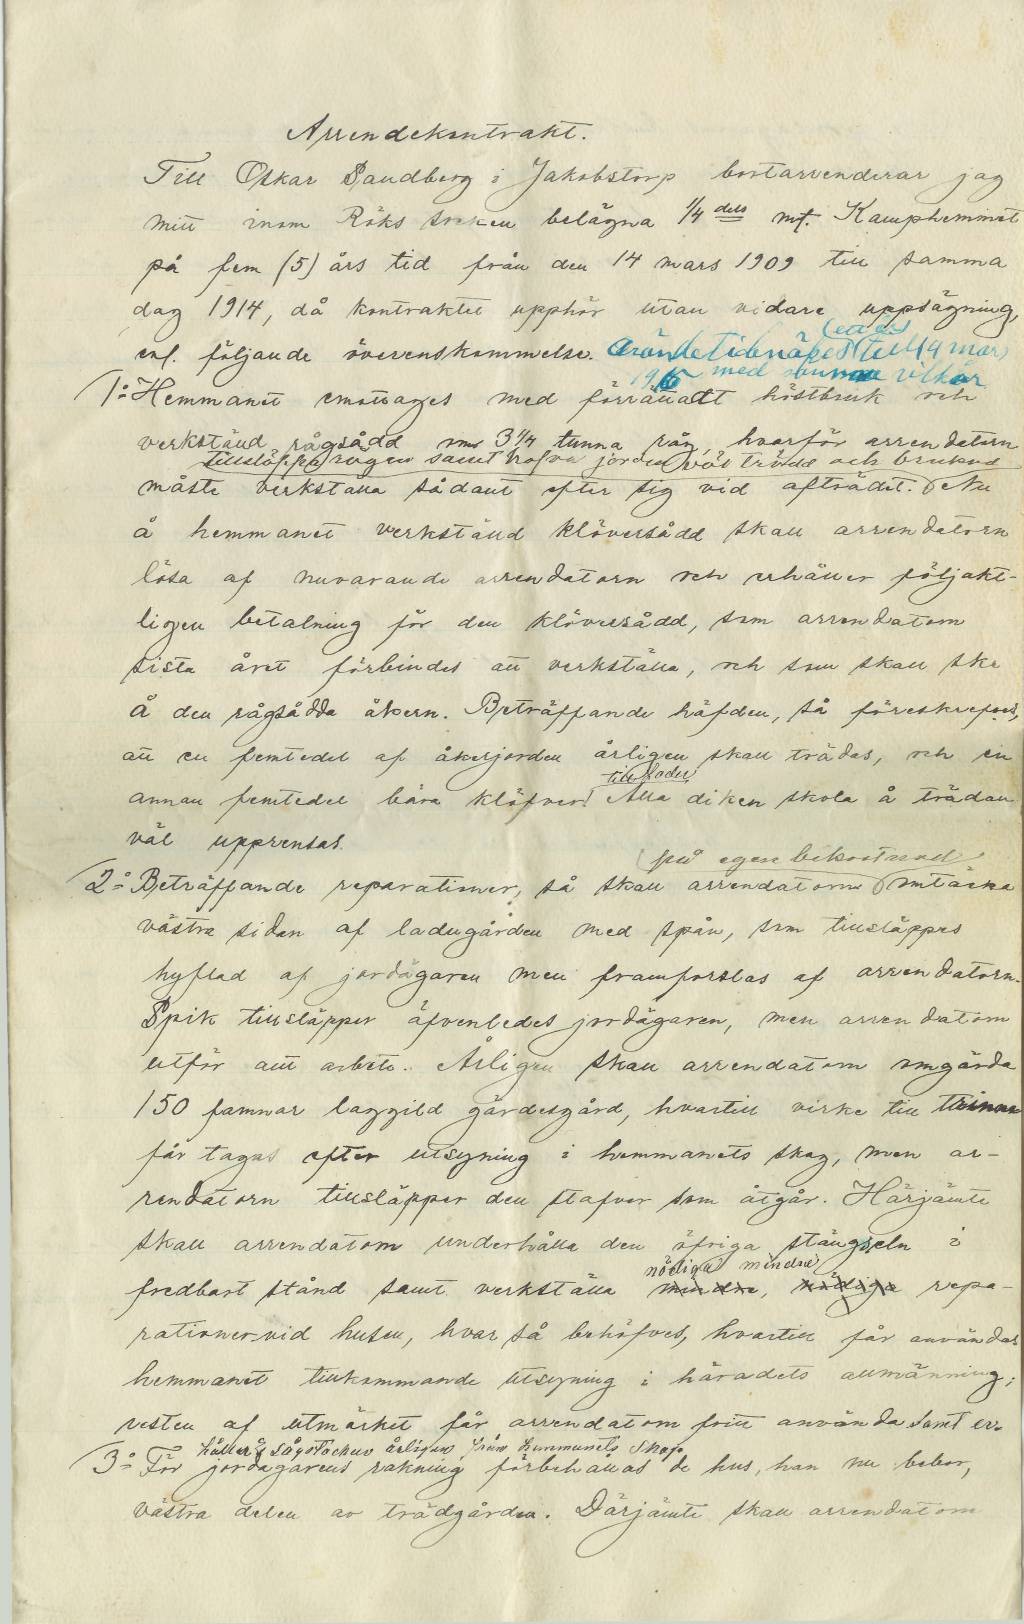 Arrendekontrakt.
Till Oskar Sandberg i Jakobstorp bortarrenderar jag
mitt inom Röks socken belägna 1/4 dels mt. Kamphemmet
på fem (5) års tid från den 14 mars 1909 till samma
dag 1914, då kontraktet upphör utan vidare uppsägning,
enl. följande överenskommelse. (ett år)
till 14 mars
med samma vilkor
1:o Hemmanet emottages med förrättadt höstbruk och
verkställd rågsådd om 3 1/4 tunna råg, hvarför arrendatorn
tillsläppa rågen samt halfva jorden väl trädd och brukad
måste verkställa sådant efter sig vid afträdet. Nu
å hemmanet verkställd klöversådd skall arrendatorn
lösa af nuvarande arrendatorn och erhåller följakt-
ligen betalning för den klöversådd, som arrendatorn
sista året förbindes att verkställa, och som skall ske
å den rågsådda åkern. Beträffande häfden, så föreskrefves,
att en femtedel af åkerjorden årligen skall trädas, och en
till foder
annan femtedel bära klöfver. Alla diken skola å trädan
väl upprensas.
på egen bekostnad
2:o Beträffande reparationer, så skall arrendatorn omtäcka
västra sidan af ladugården med spån, som tillsläppes
hyflad af jordägaren men framforslas af arrendatorn.
Spik tillsläpper äfvenledes jordägaren, men arrendatorn
utför allt arbete. Årligen skall arrendatorn omgärda
150 famnar laggild gärdesgård, hvartill virke till
får tagas efter utsyning i hemmanets skog, men ar-
rendatorn tillsläpper den stafver som åtgår. Härjämte
skall arrendatorn underhålla den öfriga stängseln i
nödiga mindre
fredbart stånd samt verkställa mindre, nödiga repa-
rationer vid husen, hvar så behöfves, hvartill får användas
hemmanet tillkommande utsyning i häradets allmänning;
resten af utmärket får arrendatorn fritt använda samt er-
håller 8 sågstockar årligen från hemmanets skog.
3:o För jordägarens räkning förbehållas de hus, han nu bebor,
västra delen av trädgården. Därjämte skall arrendatorn